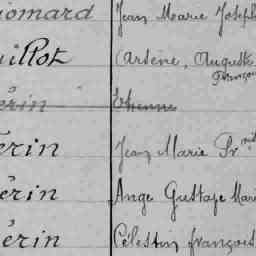 iomard Jean Marie Joseph
uillot Arsène, Auguste
François
érin Etienne
érin Jean Marie Fr^ois
érin Ange Gustave Mari
érin Célestin françois